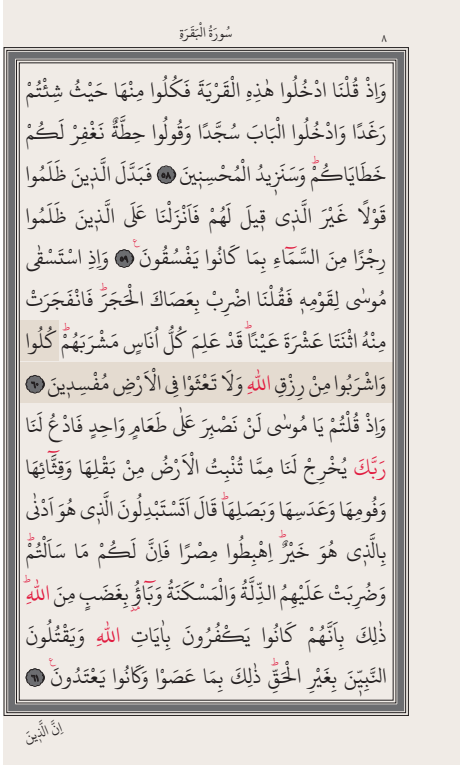 سُورَةُ الْبَقَرَةِ ٨
وَاِذْ قُلْنَا ادْخُلُوا هٰذِهِ الْقَرْيَةَ فَكُلُوا مِنْهَا حَيْثُ شِئْتُمْ
رَغَدًا وَادْخُلُوا الْبَابَ سُجَّدًا وَقُولُوا حِطَّةٌ نَغْفِرْ لَكُمْ
خَطَايَاكُمْۜ وَسَنَزِيدُ الْمُحْسِنِينَ ٥٨ فَبَدَّلَ الَّذِينَ ظَلَمُوا
قَوْلًا غَيْرَ الَّذِى قِيلَ لَهُمْ فَاَنْزَلْنَا عَلَى الَّذِينَ ظَلَمُوا
رِجْزًا مِنَ السَّمَٓاءِ بِمَا كَانُوا يَفْسُقُونَ۟ ٥٩ وَاِذِ اسْتَسْقٰى
مُوسٰى لِقَوْمِهِ فَقُلْنَا اضْرِبْ بِعَصَاكَ الْحَجَرَۜ فَانْفَجَرَتْ
مِنْهُ اثْنَتَا عَشْرَةَ عَيْنًاۜ قَدْ عَلِمَ كُلُّ اُنَاسٍ مَشْرَبَهُمْۜ كُلُوا
وَاشْرَبُوا مِنْ رِزْقِ اللّٰهِ وَلَا تَعْثَوْا فِى الْاَرْضِ مُفْسِدِينَ ٦٠
وَاِذْ قُلْتُمْ يَا مُوسٰى لَنْ نَصْبِرَ عَلٰى طَعَامٍ وَاحِدٍ فَادْعُ لَنَا
رَبَّكَ يُخْرِجْ لَنَا مِمَّا تُنْبِتُ الْاَرْضُ مِنْ بَقْلِهَا وَقِثَّٓائِهَا
وَفُومِهَا وَعَدَسِهَا وَبَصَلِهَاۜ قَالَ اَتَسْتَبْدِلُونَ الَّذِى هُوَ اَدْنٰى
بِالَّذِى هُوَ خَيْرٌۜ اِهْبِطُوا مِصْرًا فَاِنَّ لَكُمْ مَا سَاَلْتُمْۜ
وَضُرِبَتْ عَلَيْهِمُ الذِّلَّةُ وَالْمَسْكَنَةُ وَبَٓاؤُ۫ بِغَضَبٍ مِنَ اللّٰهِۜ
ذٰلِكَ بِاَنَّهُمْ كَانُوا يَكْفُرُونَ بِاٰيَاتِ اللّٰهِ وَيَقْتُلُونَ
النَّبِيّٖنَ بِغَيْرِ الْحَقِّۜ ذٰلِكَ بِمَا عَصَوْا وَكَانُوا يَعْتَدُونَ۟ ٦١
اِنَّ الَّذِينَ